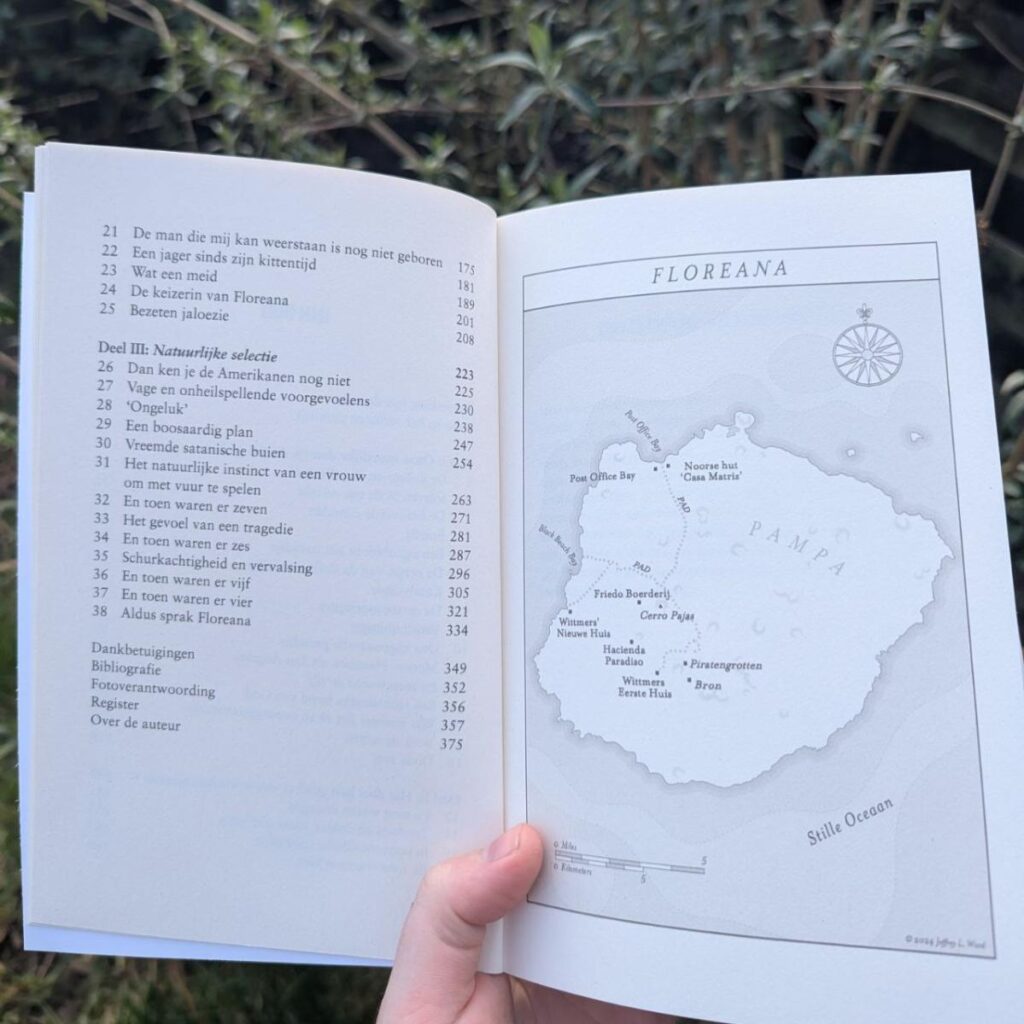 21 De man die mij kan weerstaan is nog niet geboren 175
22 Een jager sinds zijn kittentijd 181
23 Wat een meid 189
24 De keizerin van Floreana 201
25 Bezeten jaloezie 208
Deel III: Natuurlijke selectie 223
26 Dan ken je de Amerikanen nog niet 225
27 Vage en onheilspellende voorgevoelens 230
28 ‘Ongeluk’ 238
29 Een boosaardig plan 247
30 Vreemde satanische buien 254
31 Het natuurlijke instinct van een vrouw
om met vuur te spelen 263
32 En toen waren er zeven 271
33 Het gevoel van een tragedie 281
34 En toen waren er zes 287
35 Schurkachtigheid en vervalsing 296
36 En toen waren er vijf 305
37 En toen waren er vier 321
38 Aldus sprak Floreana 334
Dankbetuigingen 349
Bibliografie 352
Fotoverantwoording 356
Register 357
Over de auteur 375
FLOREANA
Post Office Bay
Post Office Bay
Noorse hut
‘Casa Matris’
PAD
PAMPA
Black Beach Bay
PAD
Friedo Boerderij
Cerro Pajas
Wittmers’
Nieuwe Huis
Hacienda
Paradiso
Piratengrotten
Wittmers
Eerste Huis
Bron
Stille Oceaan
0 Miles 5
0 Kilometers 5
© 2024 Jeffrey L. Ward